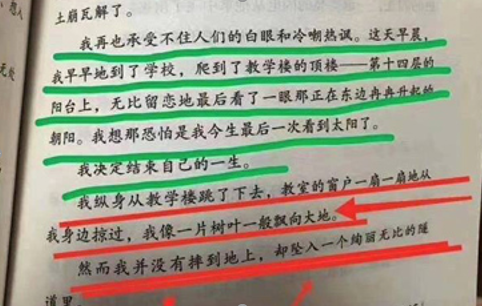 土崩瓦解了。
我再也承受不住人们的白眼和冷嘲热讽。这天早晨，
我早早地到了学校，爬到了教学楼的顶楼——第十四层的
阳台上，无比留恋地最后看了一眼那正在东边冉冉升起的
朝阳。我想那恐怕是我今生最后一次看到太阳了。
我决定结束自己的一生。
我纵身从教学楼跳了下去，教室的窗户一扇一扇地从
我身边掠过，我像一片树叶一般飘向大地。
然而我并没有摔到地上，却坠入一个绚丽无比的隧
道里。